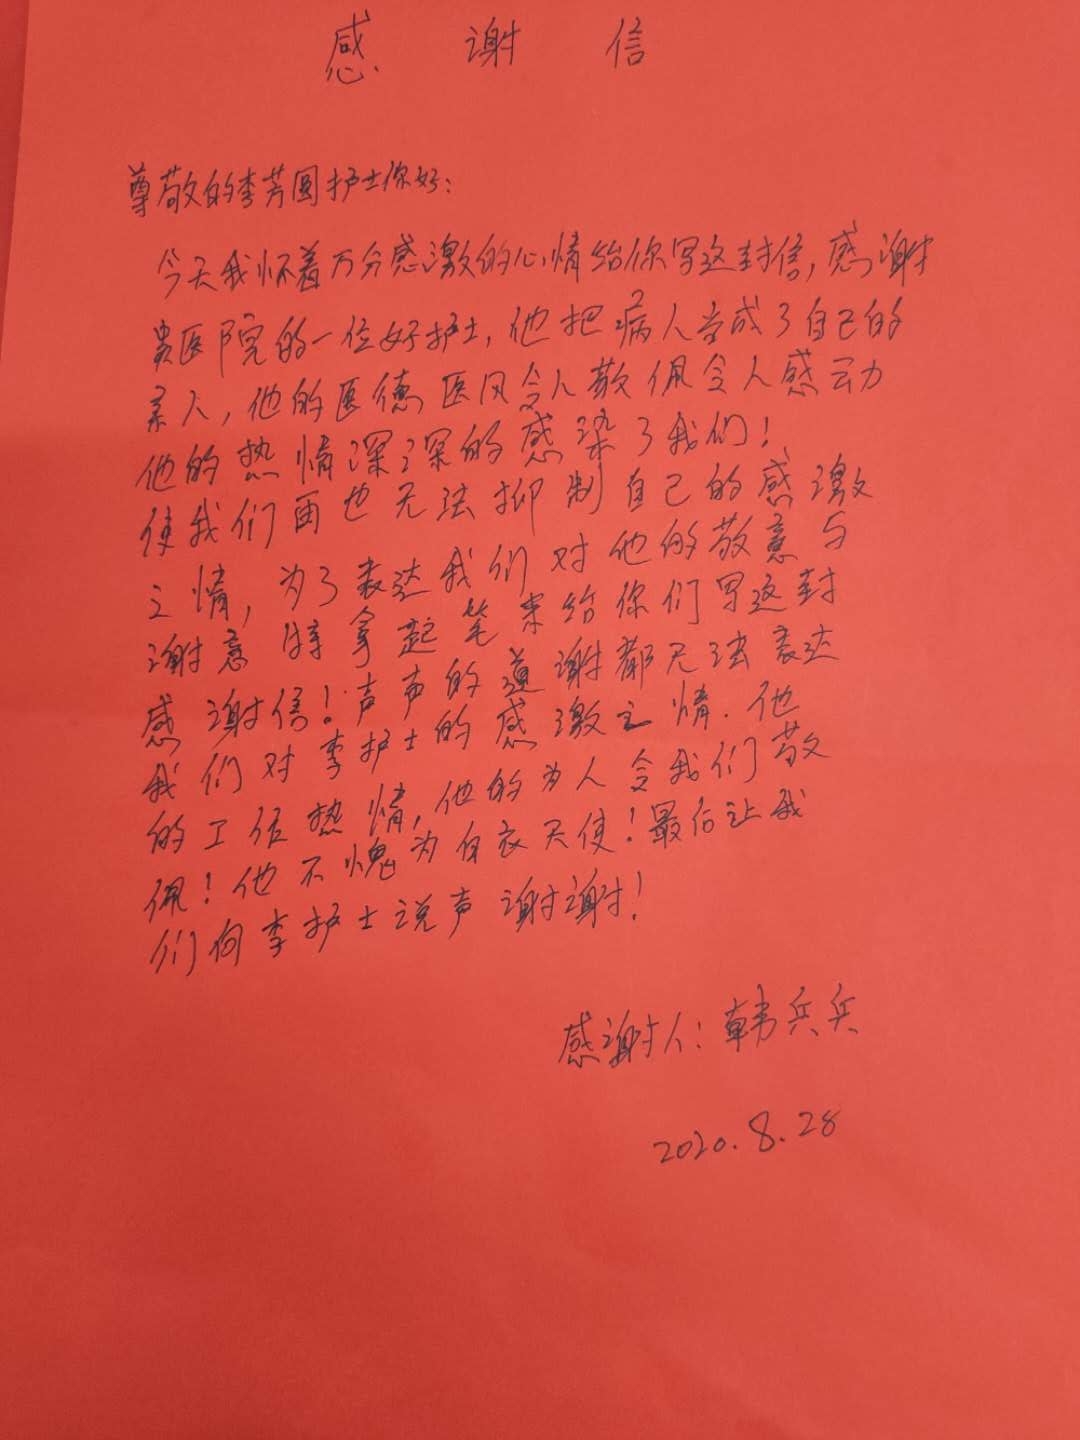 感谢信
尊敬的李芳圆护士你好：
今天我怀着万分感激的心情给你写这封信，感谢
贵医院的一位好护士，他把病人当成了自己的
亲人，他的医德医风令人敬佩令人感动
他的热情深深的感染了我们！
使我们再也无法抑制自己的感激
之情，为了表达我们对他的敬意与
谢意特拿起笔来给你们写这封
感谢信！声声的道谢都无法表达
我们对李护士的感激之情．他
的工作热情，他的为人令我们敬
佩！他不愧为白衣天使！最后让我
们向李护士说声谢谢！
感谢人：韩兵兵
2020.8.28